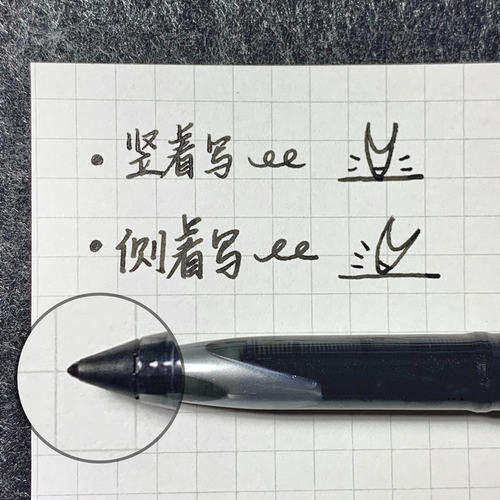 · 竖着写 ee
· 侧着写 ee